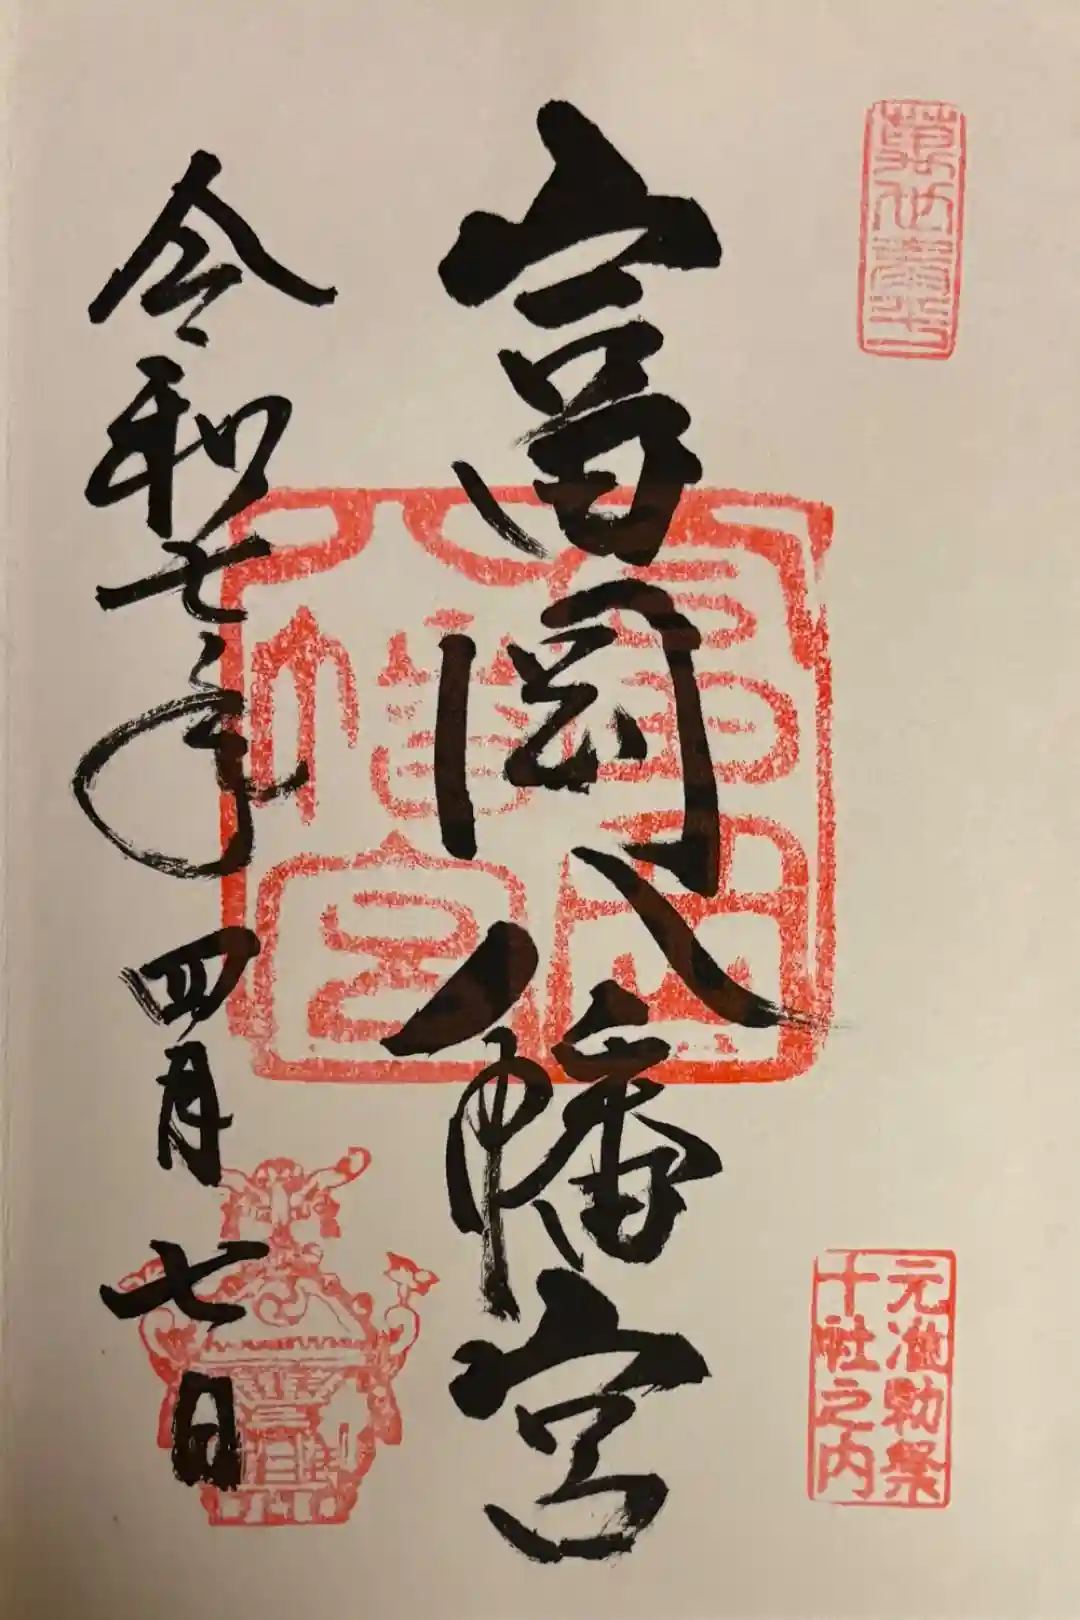 富岡八幡宮
元准勅祭
十社之内
令和七年四月七日
富岡
八幡宮